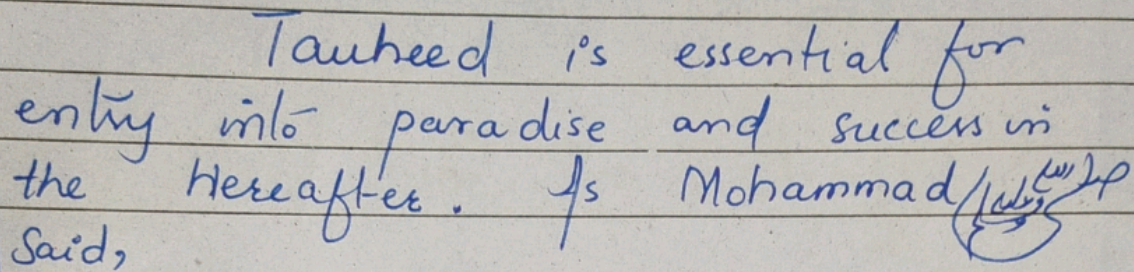 Tauheed is essential for
entry into paradise and success in
the Hereafter. As Mohammad ﷺ
Said,